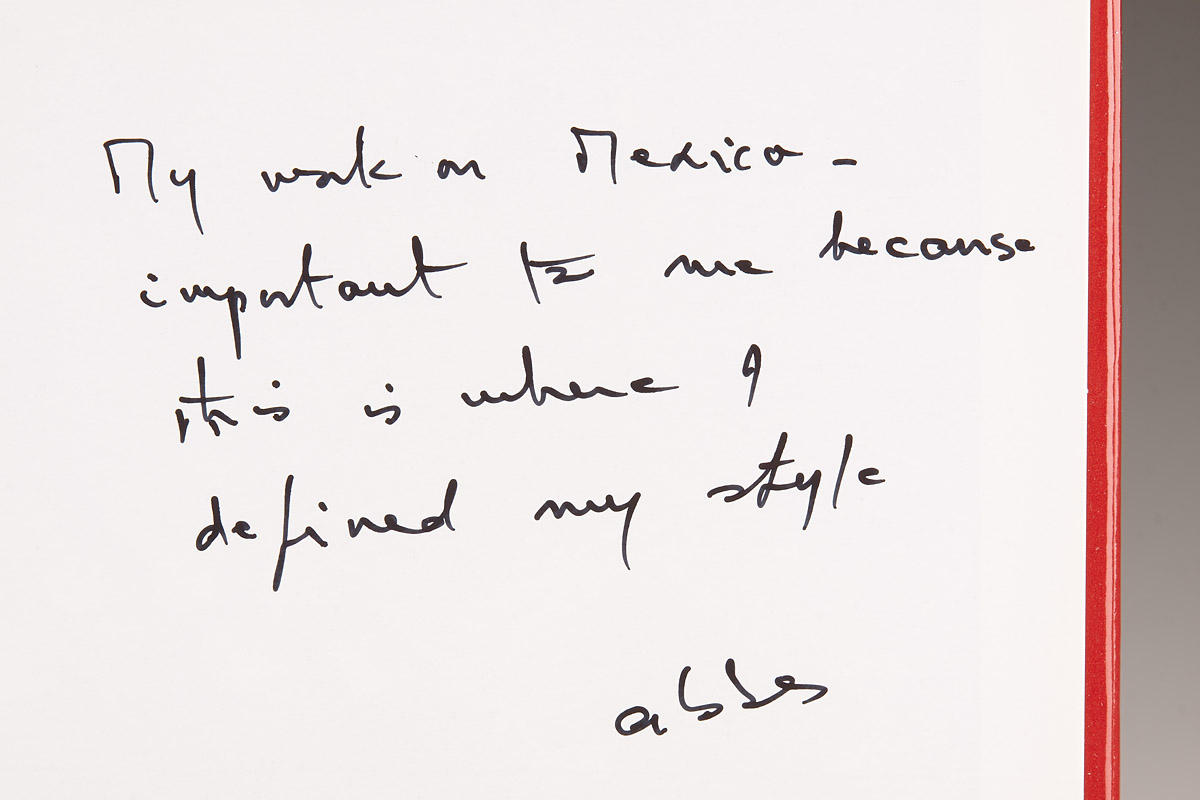 My work on Mexico -
important to me because
this is where I
defined my style
abbas